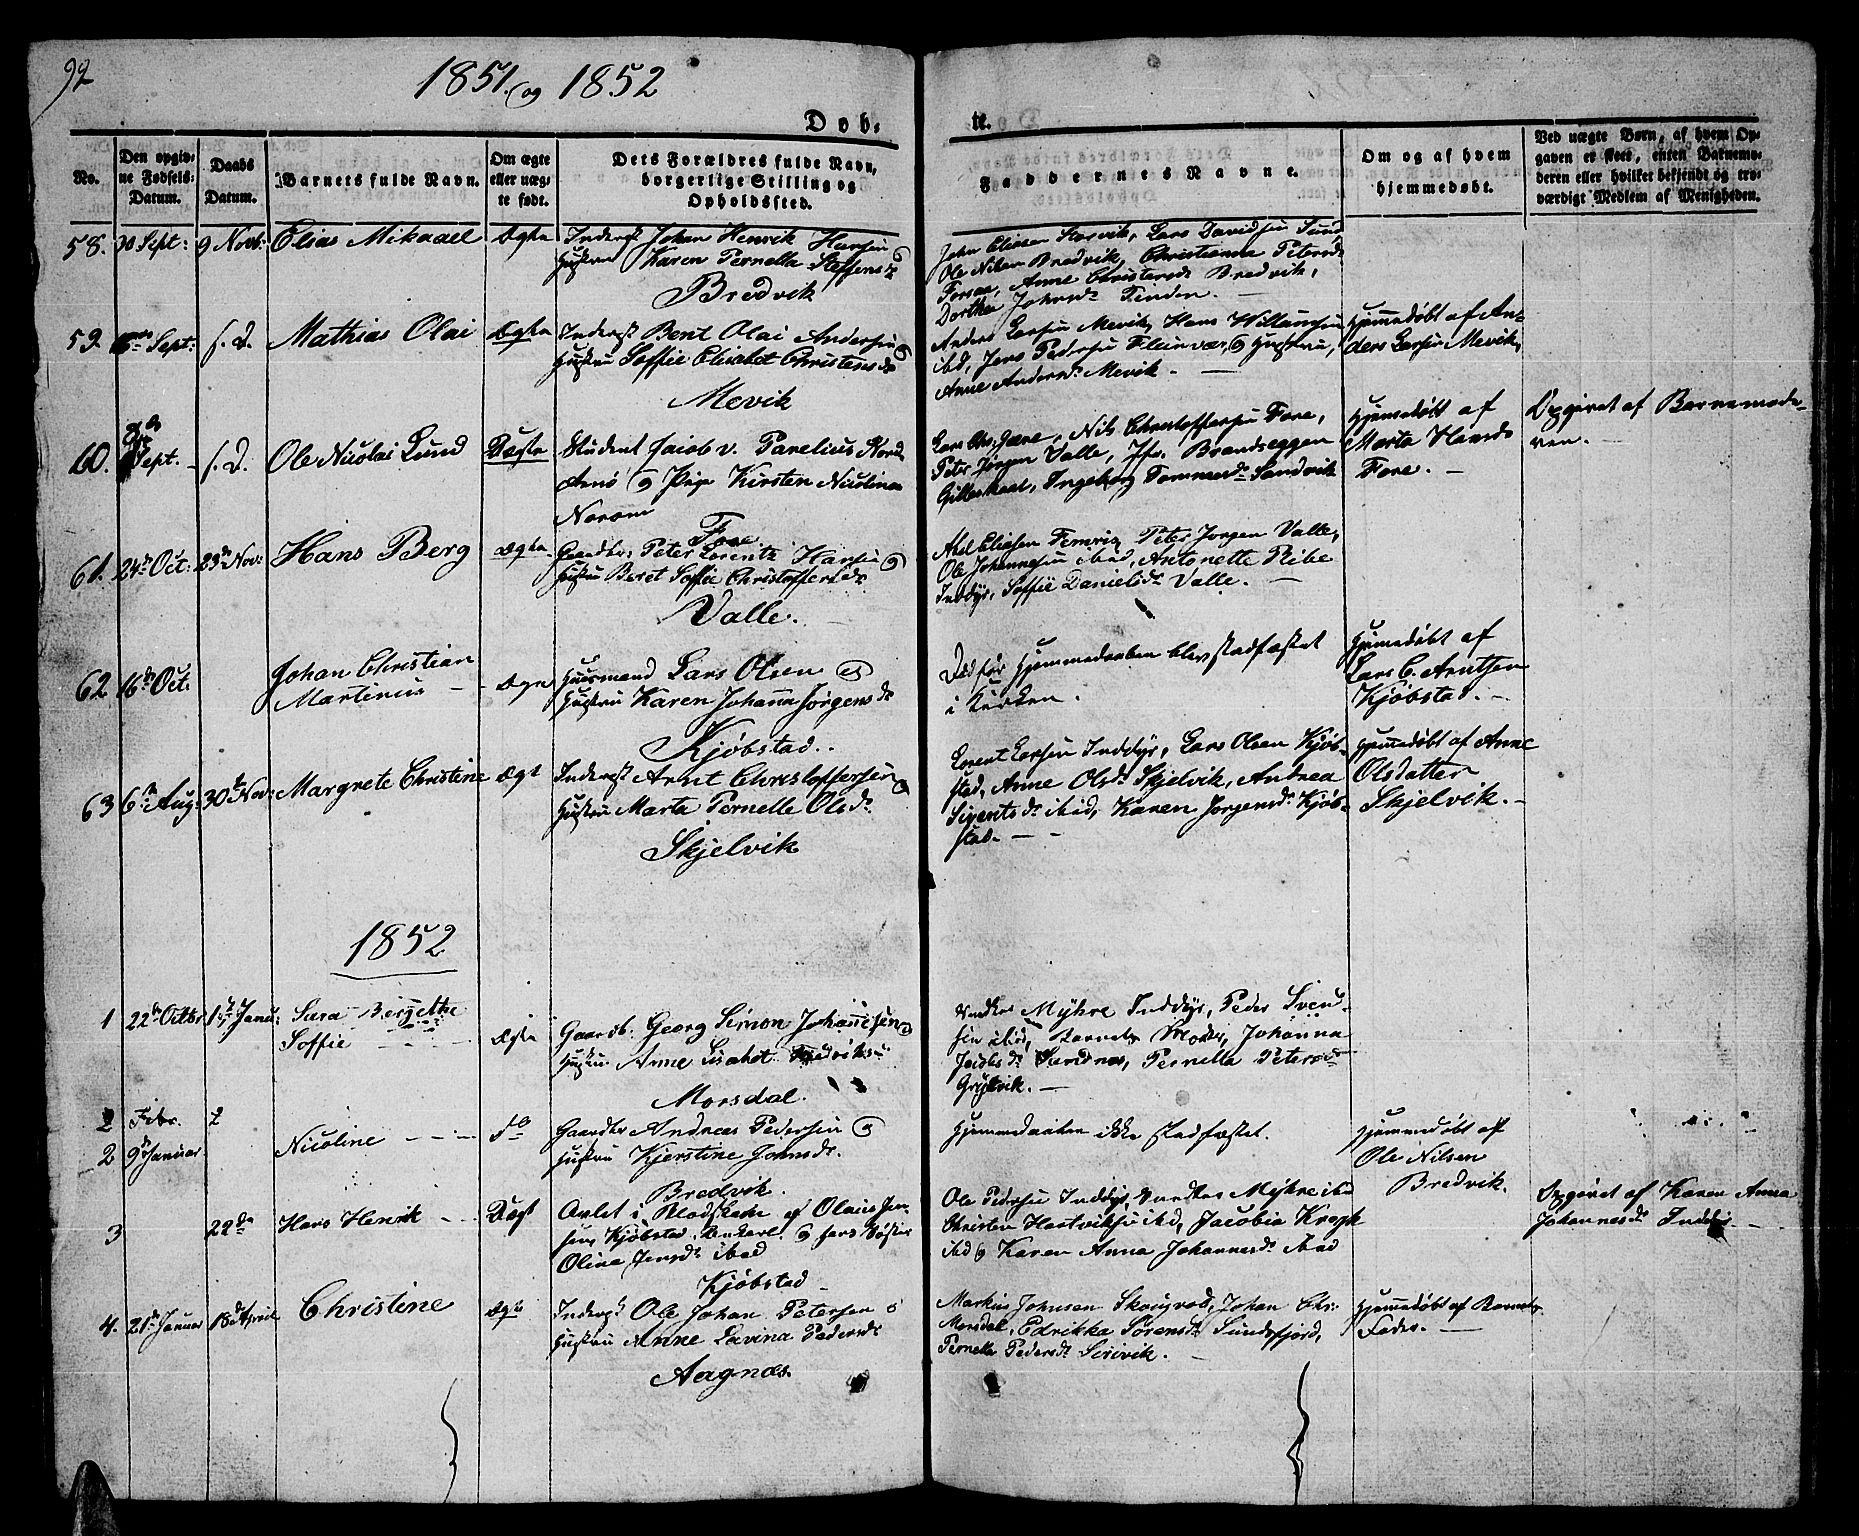 92
1851. og 1852
Døb-
te.
No.
Den opgiv-
ne Fødsels-
Datum.
Daabs
Datum.
Barnets fulde Navn.
Om ægte
eller uæg-
te født.
Dets Forældres fulde Navn,
borgerlige Stilling og
Opholdssted.
Faddernes Navne.
Om og af hvem
hjemmedøbt.
Ved uægte Børn, af hvem Op-
gaven er skeet, enten Barnemo-
deren eller hvilket bekjendt og tro-
værdigt Medlem af Menigheden.
58. 30 Sept: 9 Novb: Elias Mikael Ægte Inderst Johan Henrik Hansen og
Hustru Karen Pernella Steffensd.
Bredvik
John Eliasen Lars Davidsen Sund
Ole Nilsen Bredvik, Christianna Petersd.
Forsaa, Anne Christensd. Bredvik,
Dorthea Johnsd. Tinden.
59. Sept: s. D. Mathias Olai Ægte Inderst Bent Olai Andersen og
Hustru Soffie Elisabet Christensd.
Mevik
Anders Larsen Mevik, Hans Willumsen
ibd, Jens Pedersen Fleinvær, og Hustru,
Anne Andersd. Mevik. -
Hjemmedøbt af An-
ders Larsen Mevik,
60. Sept. s. D. Ole Nicolai Lund Uægte Student Jacob v. Parelius Nord
Arnø og Pige Kirsten Nicolina
Fore
Lars Chr. Nils Christoffersen Fore,
Peter Jørgen Valle, Jfr. Brandseggen
Gilleskaal, Ingeborg Tommesd. Sandvik
Hjemmedøbt af
Marta Hansd.
Fore. -
Opgivet af Barnemode-
ren. -
61. 24de Oct: 23de Nov: Hans Berg Ægte Gaardbr. Peter Lorentz Hansen og
Hustru Beret Soffie Christoffersd.
Valle.
Abel Eliasen Peter Jørgen Valle,
Ole Johannesen ibid, Antonette Ribe
Inddyr, Soffie Danielsd. Valle.
62. 16de Oct: Johan Christian
Martinus - Ægte Huusmand Lars Olsen og
Hustru Karen Johanna Jørgensd.
Kjøbstad.
Død før Hjemmedaaben blev stadfæstet
i Kirken.
Hjemmedøbt af
Lars C. Arntsen
Kjøbstad. -
63 6te Aug: 30te Nov: Margrete Christine Ægte Inderst Arnt Christoffersen og
Hustru Marta Pernelle Olsd.
Skjelvik
Lorent Larsen Inddyr, Lars Olsen Kjøb-
stad, Anne Olsd. Skjelvik, Andrea
Sivertsd. ibid, Karen Jørgensd. Kjøb-
stad. -
Hjemmedøbt af Anne
Olsdatter
Skjelvik. -
1852
1 22de Octbr 1ste Janu: Sara Bergethe
Soffie Ægte Gaardb. Georg Simon Johannesen og
Hustru Anne Lisabet
Morsdal.
Myhre Inddyr, Peder Sven-
sen ibid, Johanna
Jacobsd. Pernella Petersd.
Grytvik. -
2 Febr. 2
2 9de Januar Nicoline do Gaardbr Andreas Pedersen og
Hustru Kjerstine Johnsd.
Bredvik.
Hjemmedaaben ikke stadfæstet.
Hjemmedøbt af
Ole Nilsen
Bredvik.
3 22de Hans Henrik Uægt Avlet i Blodskam af Olaus Jen-
sen, Kjøbstad, Ungkarl, og hans Søster
Olina Jensd. ibid
Kjøbstad
Ole Pedersen Inddyr, Myhre ibd
Christen Hartviksen ibd, Jacobia Krogh
ibd og Karen Anna Johannesd. ibid
Opgivet af Karen Anna
Johannesd. Inddyr -
4. 21de Januar 18de April Christine Ægte Inderst Ole Johan Petersen og
Hustru Anne Lavina Pedersd.
Aagnæs
Markus Johnsen Skougvod, Johan Chr.
Morsdal, Edrikka Sørensd. Sundsfjord,
Pernella Pedersd. Sørvik. -
Hjemmedøbt af Barnets
Fader. -